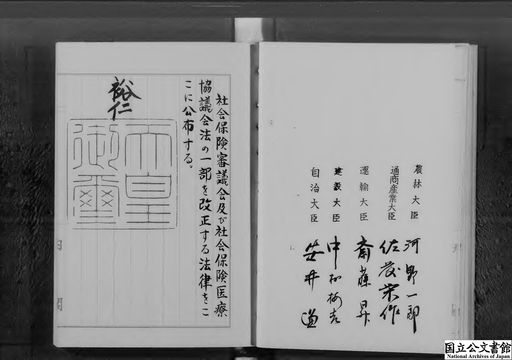 農林大臣 河野一郎
通商産業大臣 佐藤栄作
運輸大臣 斎藤昇
建設大臣 中村梅吉
自治大臣 安井謙
社会保険審議会及び社会保険医療
協議会法の一部を改正する法律をこ
こに公布する。
裕仁
天皇
御璽
国立公文書館
National Archives of Japan